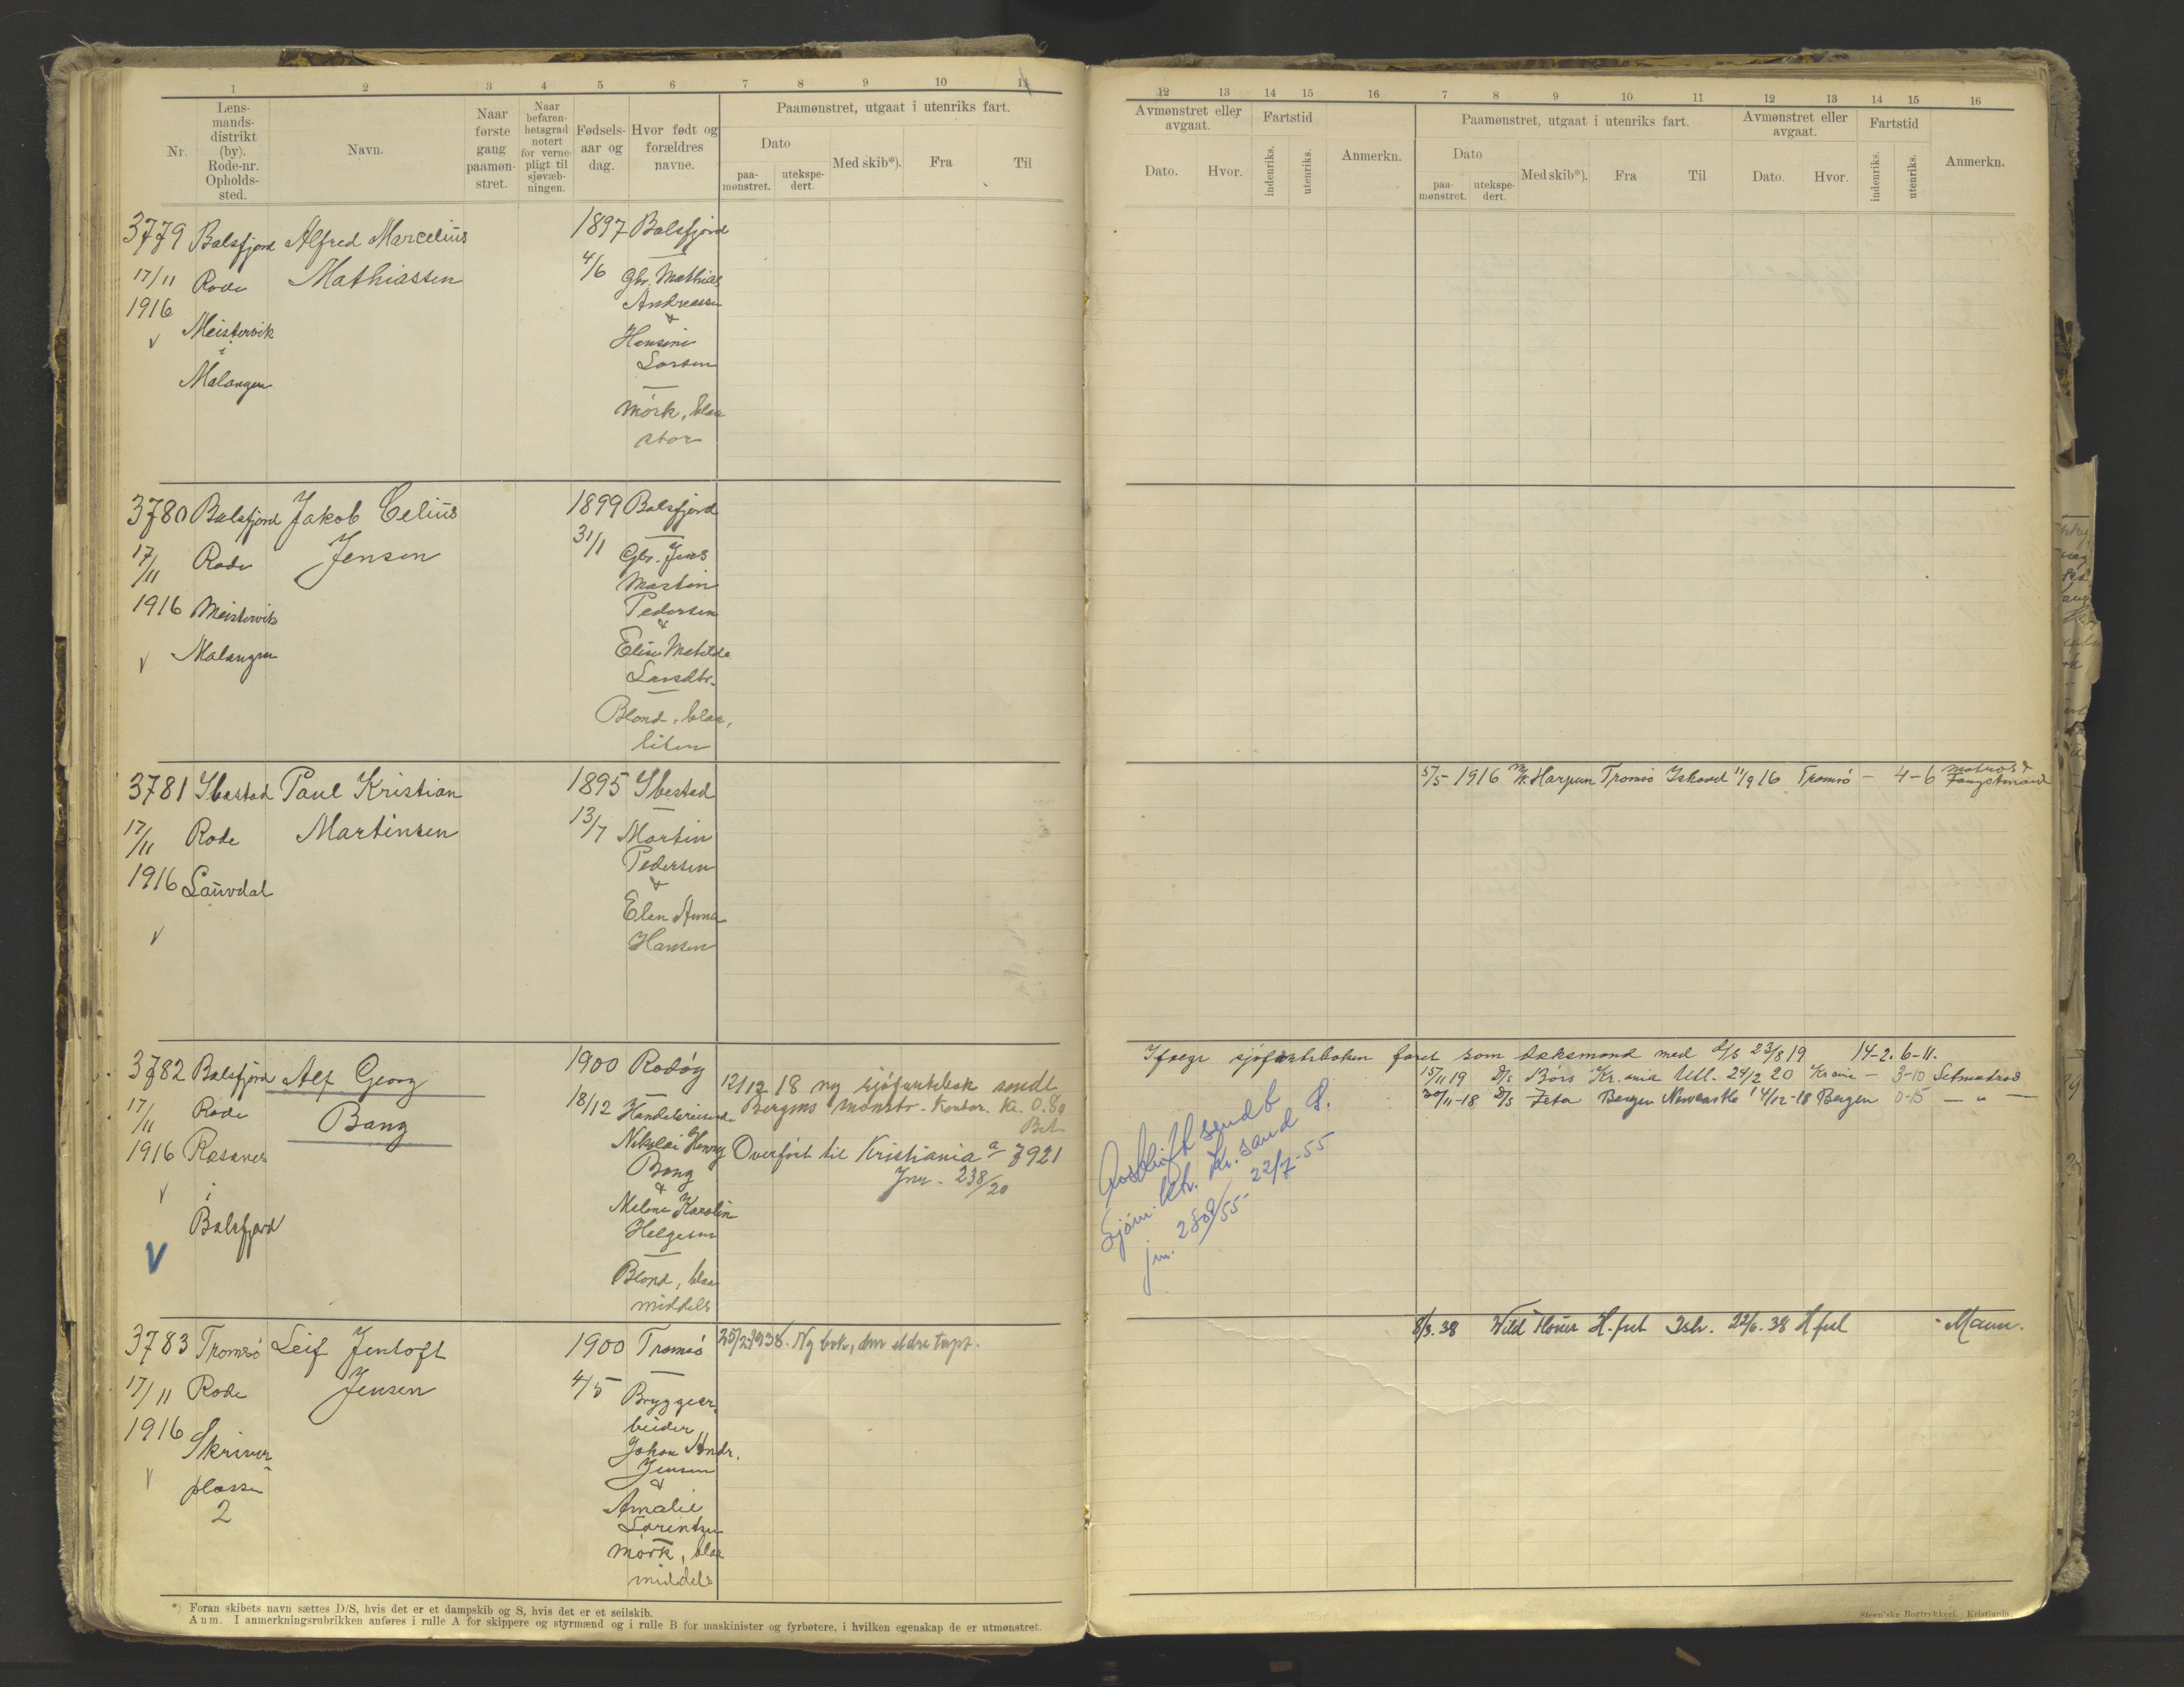 1 2 3 4 5 6 7 8 9 10 11
Nr. Lensmandsdistrikt (by). Rode-nr. Opholdssted. Navn. Naar første gang paamønstret. Naar befarenhetsgrad notert for vernepligt til sjøvæbningen. Fødselsaar og dag. Hvor født og forældres navne. Paamønstret, utgaat i utenriks fart.
Dato Med skib*). Fra Til
paamønstret. utekspedert.
3779 Balsfjord Alfred Marcelius 1897 Balsfjord
17/11 Rode Mathiassen 4/6 Gbr. Mathias
1916 Andreassen
Meistervik &
i Hansine
Malangen Larsen
Mörk, blaa
stor
3780 Balsfjord Jakob Celius 1899 Balsfjord
17/11 Rode Jensen 31/1 Gbr. Jens
1916 Meistervik Martin
Malangen Pedersen
&
Elise Matilde
Larsdtr.
Blond, blaa,
liten
3781 Ibestad Paul Kristian 1895 Ibestad
17/11 Rode Martinsen 13/7 Martin
1916 Lauvdal Pedersen
&
Elen Anna
Hansen
3782 Balsfjord Alf Georg 1900 Rodöy
17/11 Rode Bang 18/12 Handelsreisende
1916 Nikolai Henry
i Bang
Balsfjord &
Karolin
Helgesen
Blond, blaa
middels
12/12 18 ny sjöfartsbok sendt
Bergens mønstr. Kontor. Kr. 0.80
Bet
Overført til Kristiania a 7921
Jnr. 238/20
3783 Tromsö Leif Jentoft 1900 Tromsö 25/2 1938. Ny bok, den eldre tapt.
17/11 Rode Jensen 4/5 Bryggear-
1916 Skriver- beider
plassen Johan Andr.
2 Jensen
&
Amalie
Lorentsen
Mörk, blaa
middels
*) Foran skibets navn sættes D/S, hvis det er et dampskib og S, hvis det er et seilskib.
Anm. I anmerkningsrubrikken anføres i rulle A for skippere og styrmænd og i rulle B for maskinister og fyrbøtere, i hvilken egenskap de er utmønstret.
12 13 14 15 16 7 8 9 10 11 12 13 14 15 16
Avmønstret eller avgaat. Fartstid Anmerkn. Paamønstret, utgaat i utenriks fart. Avmønstret eller avgaat. Fartstid Anmerkn.
Dato. Hvor. indenriks. utenriks. Dato Med skib*). Fra Til Dato. Hvor. indenriks. utenriks.
paamønstret. utekspedert.
5/5 - 1916 M/K Harpun Tromsö Ishavet 11/9 16 Tromsö - 4-6 matros &
Fangstmand
Ifølge sjöfartsboken faret som dæksmand med d/s 23/8 19 14-2. 6-11.
15/11 19 D/s Börs Kr.ania Utl. 24/2 20 Kr ania - 3-10 Letmatros
30/11-18 D/s Zeta Bergen Newcastle 14/12-18 Bergen 0-15 — " —
Avskrift sendt
Sjöm. ktr. Kr.sand S.
jnr. 2808/55 22/7-55
8/3. 38 Wild Flower H.fest Ish. 22/6. 38 H fest - Mann.
Steen'ske Bogtrykkeri, Kristiania